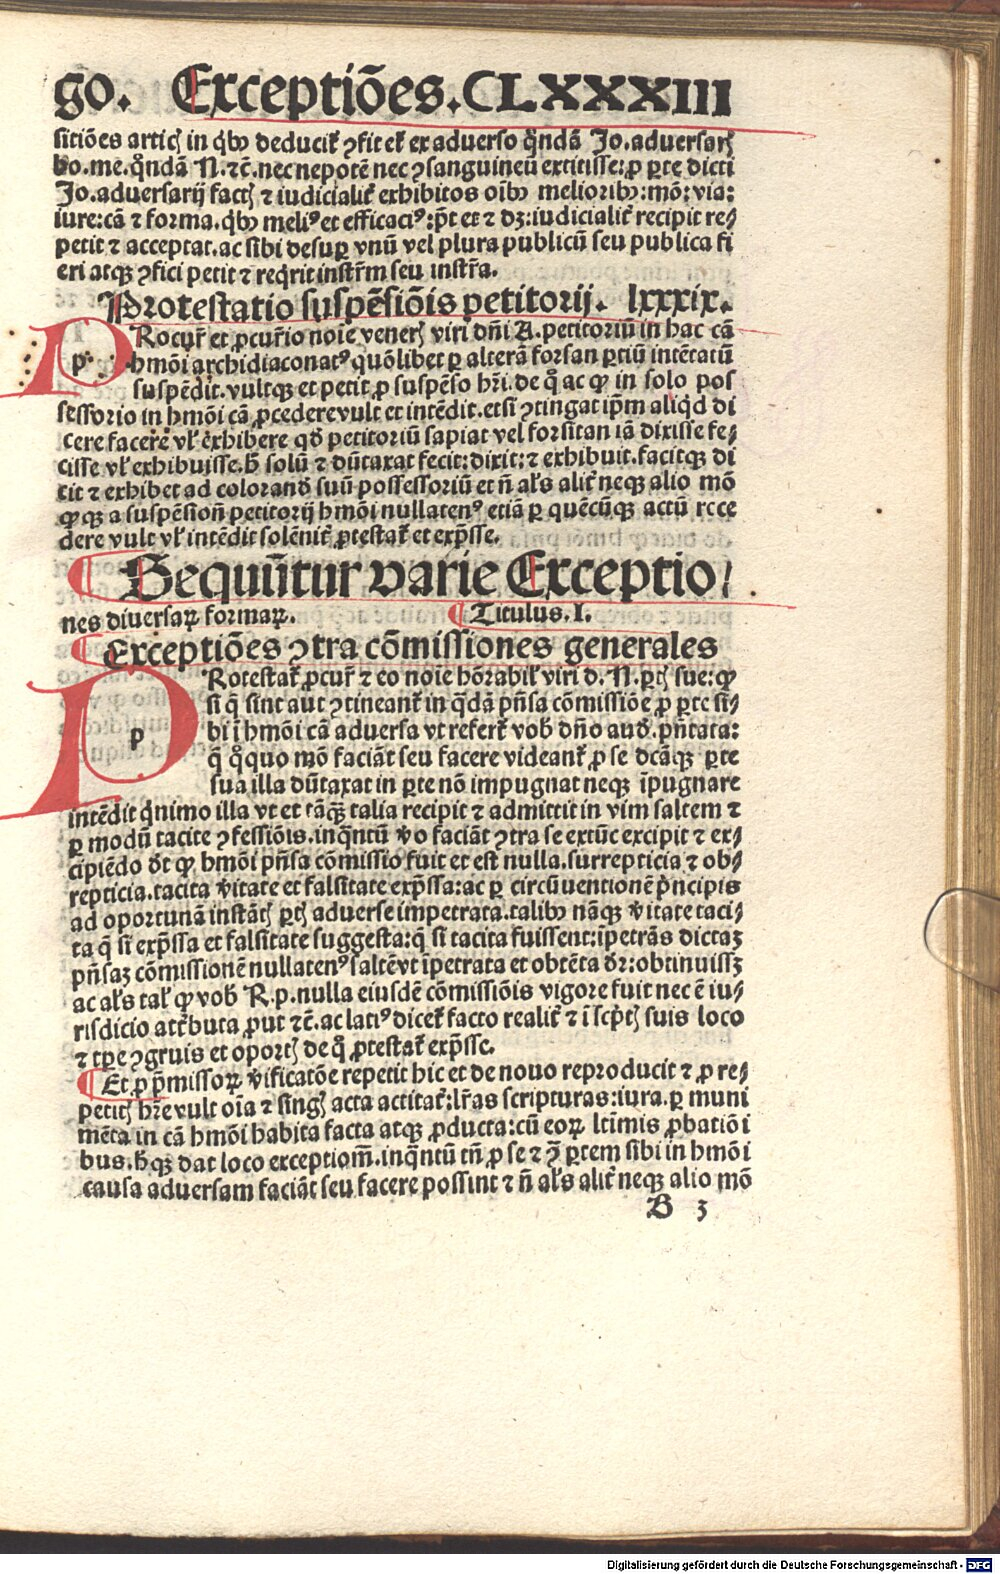 go. Exceptiões. CLXXXIII
sitiões articꝭ in qͥbꝰ deducit̃ ꝯfitet̃ ex aduerso qͦndã Jo. aduersarꝭ
bo. me. qͦndã N. ⁊c̃. nec nepotẽ nec ꝯsanguineũ extitisse: ꝓ ꝑte dicti
Jo. aduersarij factꝭ ⁊ iudicialit̃ exhibitos oĩbꝰ melioribꝰ: mõ: via:
iure: cã ⁊ forma. qͥbꝰ meliꝰ et efficaciꝰ: p̃t et ⁊ dꝫ: iudicialit̃ recipit re⸗
petit ⁊ acceptat. ac sibi desuꝑ vnũ vel plura publicũ seu publica fi
eri atqꝫ ꝯfici petit ⁊ reqͥrit instr̃m seu instr̃a.
Protestatio suspẽsiõis petitorij. lxxxix.
p Rocur̃ et ꝓcur̃io noĩe venerꝭ viri dñi A. petitoriũ in hac cã
hmõi archidiaconatꝰ quõlibet ꝑ alterã forsan ꝑtiũ intẽtatũ
suspẽdit. vultqꝫ et petit ꝓ suspẽso hr̃i. de qͦ ac ꝙ in solo pos
sessorio in hmõi cã ꝓcedere vult et intẽdit. etsi ꝯtingat ip̃m aliqͥd di
cere facere vl̃ exhibere qd̃ petitoriũ sapiat vel forsitan iã dixisse fe⸗
cisse vl̃ exhibuisse. h̃ solũ ⁊ dũtaxat fecit: dixit: ⁊ exhibuit. facitqꝫ di
cit ⁊ exhibet ad colorand̃ suũ possessoriũ et ñ al̃s alit̃ neqꝫ alio mõ
ꝙqꝫ a suspẽsion̄ petitorij hmõi nullatenꝰ etiã ꝑ quẽcũqꝫ actũ rece
dere vult vl̃ intẽdit solẽnit̃ ꝓtestat̃ et exp̃sse.
¶ Sequũtur varie Exceptio⸗
nes diuersaꝝ formaꝝ. ¶ Titulus. I.
¶ Exceptiões ꝯtra cõmissiones generales
p Rotestat̃ ꝓcur̃ ⁊ eo noĩe hõrabil̃ viri d. N. ꝑtꝭ sue: ꝙ
si q̃ sint aut ꝯtineant̃ in qͣdã p̃nsa cõmissiõe ꝓ ꝑte si⸗
bi ĩ hmõi cã aduersa vt refert̃ vob̃ dño aud̃. p̃ntata:
q̃ qͦquo mõ faciãt seu facere videant̃ ꝓ se dcãqꝫ ꝑte
sua illa dũtaxat in ꝑte nõ impugnat neqꝫ ĩpugnare
intẽdit qͥnimo illa vt et tãqꝫ talia recipit ⁊ admittit in vim saltem ⁊
ꝑ modũ tacite ꝯfessiõis. inqͣntũ ṽo faciãt ꝯtra se extũc excipit ⁊ ex⸗
cipiẽdo dt̃ ꝙ hmõi p̃nsa cõmissio fuit et est nulla. surrepticia ⁊ ob⸗
repticia. tacita ṽitate et falsitate exp̃ssa: ac ꝑ circũuentionẽ pͥncipis
ad oportunã instãtꝭ ꝑtꝭ aduerse impetrata. talibꝰ nãqꝫ ṽitate taci⸗
ta q̃ si exp̃ssa et falsitate suggesta: q̃ si tacita fuissent: ĩpetrãs dictaꝫ
p̃nsaꝫ cõmissionẽ nullatenꝰ saltẽ vt ĩpetrata et obtẽta dr̃: obtinuissꝫ
ac al̃s tal̃ ꝙ vob̃ R. p. nulla eiusdẽ cõmissiõis vigore fuit nec ẽ iu⸗
risdicio attͥbuta ꝓut ⁊c̃. ac latiꝰ dicet̃ facto realit̃ ⁊ ĩ scͥptꝭ suis loco
⁊ tꝑe ꝯgruis et oportꝭ de qͦ ꝓtestat̃ exp̃sse.
¶ Et ꝓ p̃missoꝝ ṽificatõe repetit hic et de nouo reproducit ⁊ ꝓ re⸗
petitꝭ hr̃e vult oĩa ⁊ singꝭ acta actitat̃: lr̃as scripturas: iura. ꝑ muni
mẽta in cã hmõi habita facta atqꝫ ꝓducta: cũ eoꝝ ltĩmis ꝓbatiõi
bus. h̃qꝫ dat loco exceptiom̃. inqͣntũ tñ ꝓ se ⁊ ꝯͣ ꝑtem sibi in hmõi
causa aduersam faciãt seu facere possint ⁊ ñ al̃s alit̃ neqꝫ alio mõ
B 3
Digitalisierung gefördert durch die Deutsche Forschungsgemeinschaft - DFG